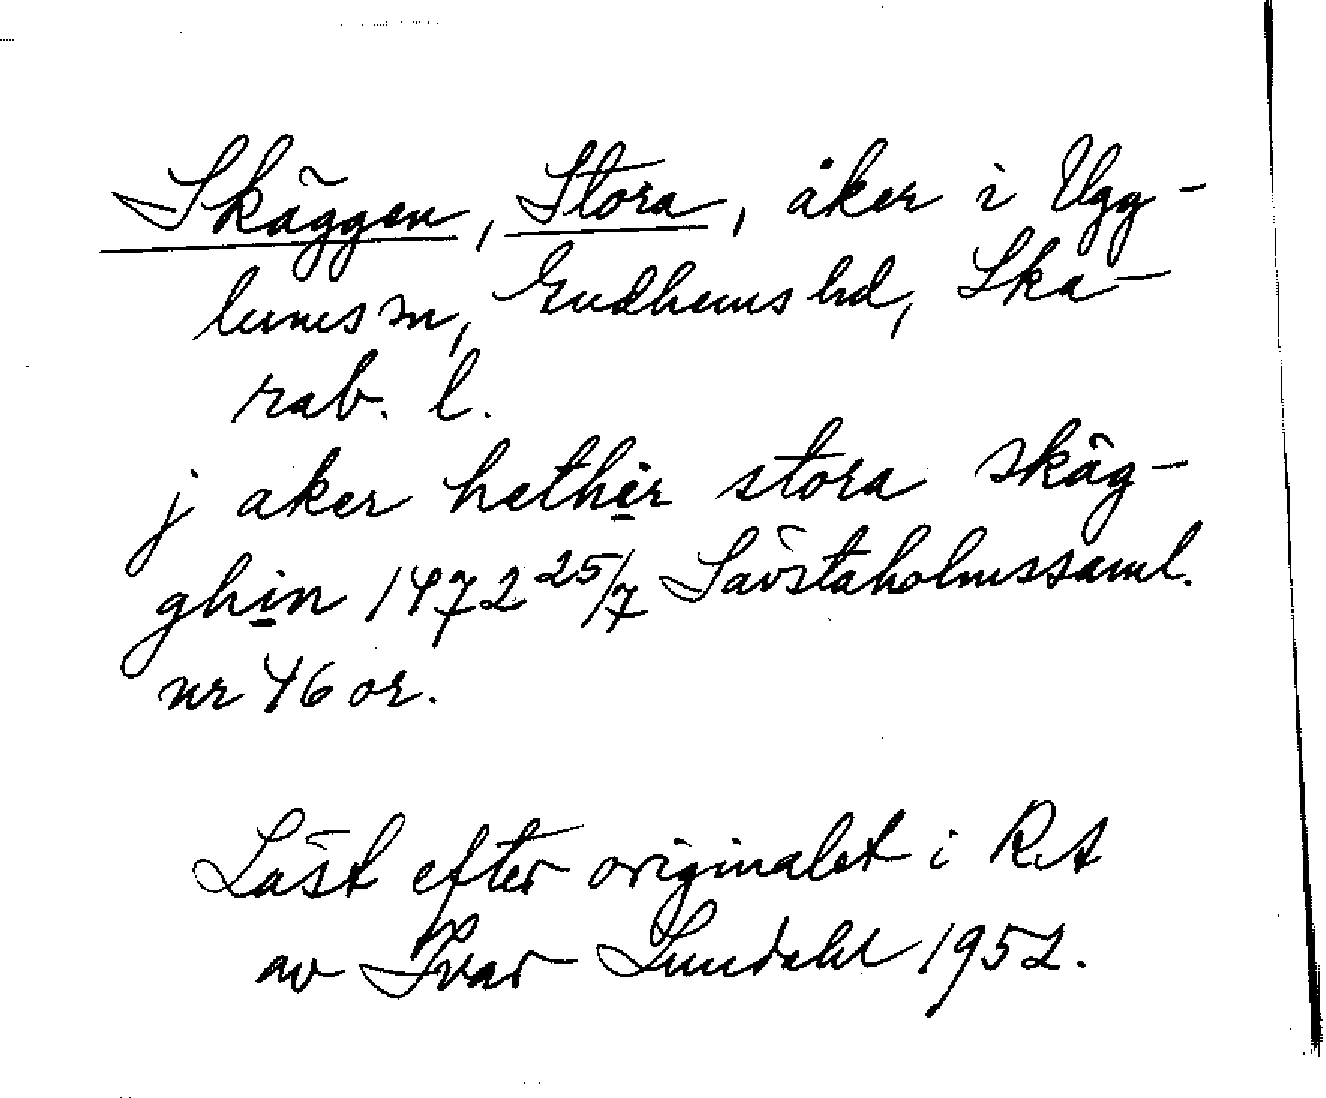 Skäggen, Stora, åker i Ugg-
lums sn, Gudhems hd, Ska-
rab. l.
j aker hether stora skäg-
ghin 1472 25/7 Sävstaholmssaml.
nr 46 or.
Läst efter originalet i RA
av Ivar Lundahl 1952.